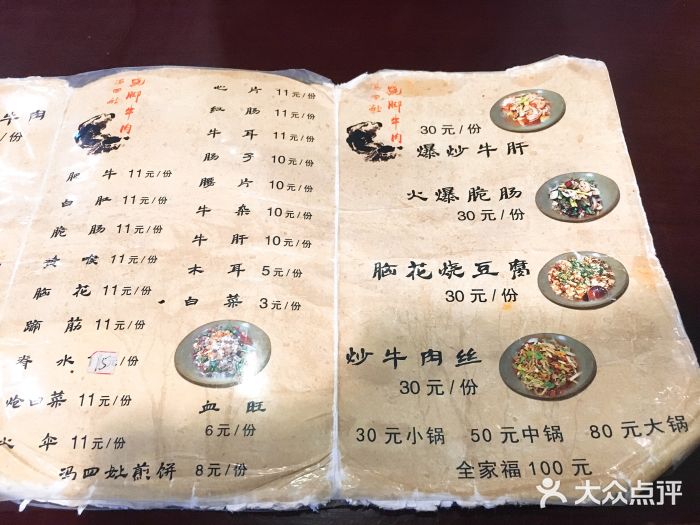 牛肉
冯四孃
跷脚牛肉
肥牛 11元/份
白肚 11元/份
脆肠 11元/份
黄喉 11元/份
脑花 11元/份
蹄筋 11元/份
脊水 15元
炝白菜 11元/份
火伞 11元/份
冯四孃煎饼 8元/份
心片 11元/份
红肠 11元/份
牛耳 11元/份
肠子 10元/份
腰片 10元/份
牛杂 10元/份
牛肝 10元/份
木耳 5元/份
白菜 3元/份
血旺
6元/份
冯四孃
跷脚牛肉
30元/份
爆炒牛肝
火爆脆肠
30元/份
脑花烧豆腐
30元/份
炒牛肉丝
30元/份
30元小锅 50元中锅 80元大锅
全家福100元
大众点评